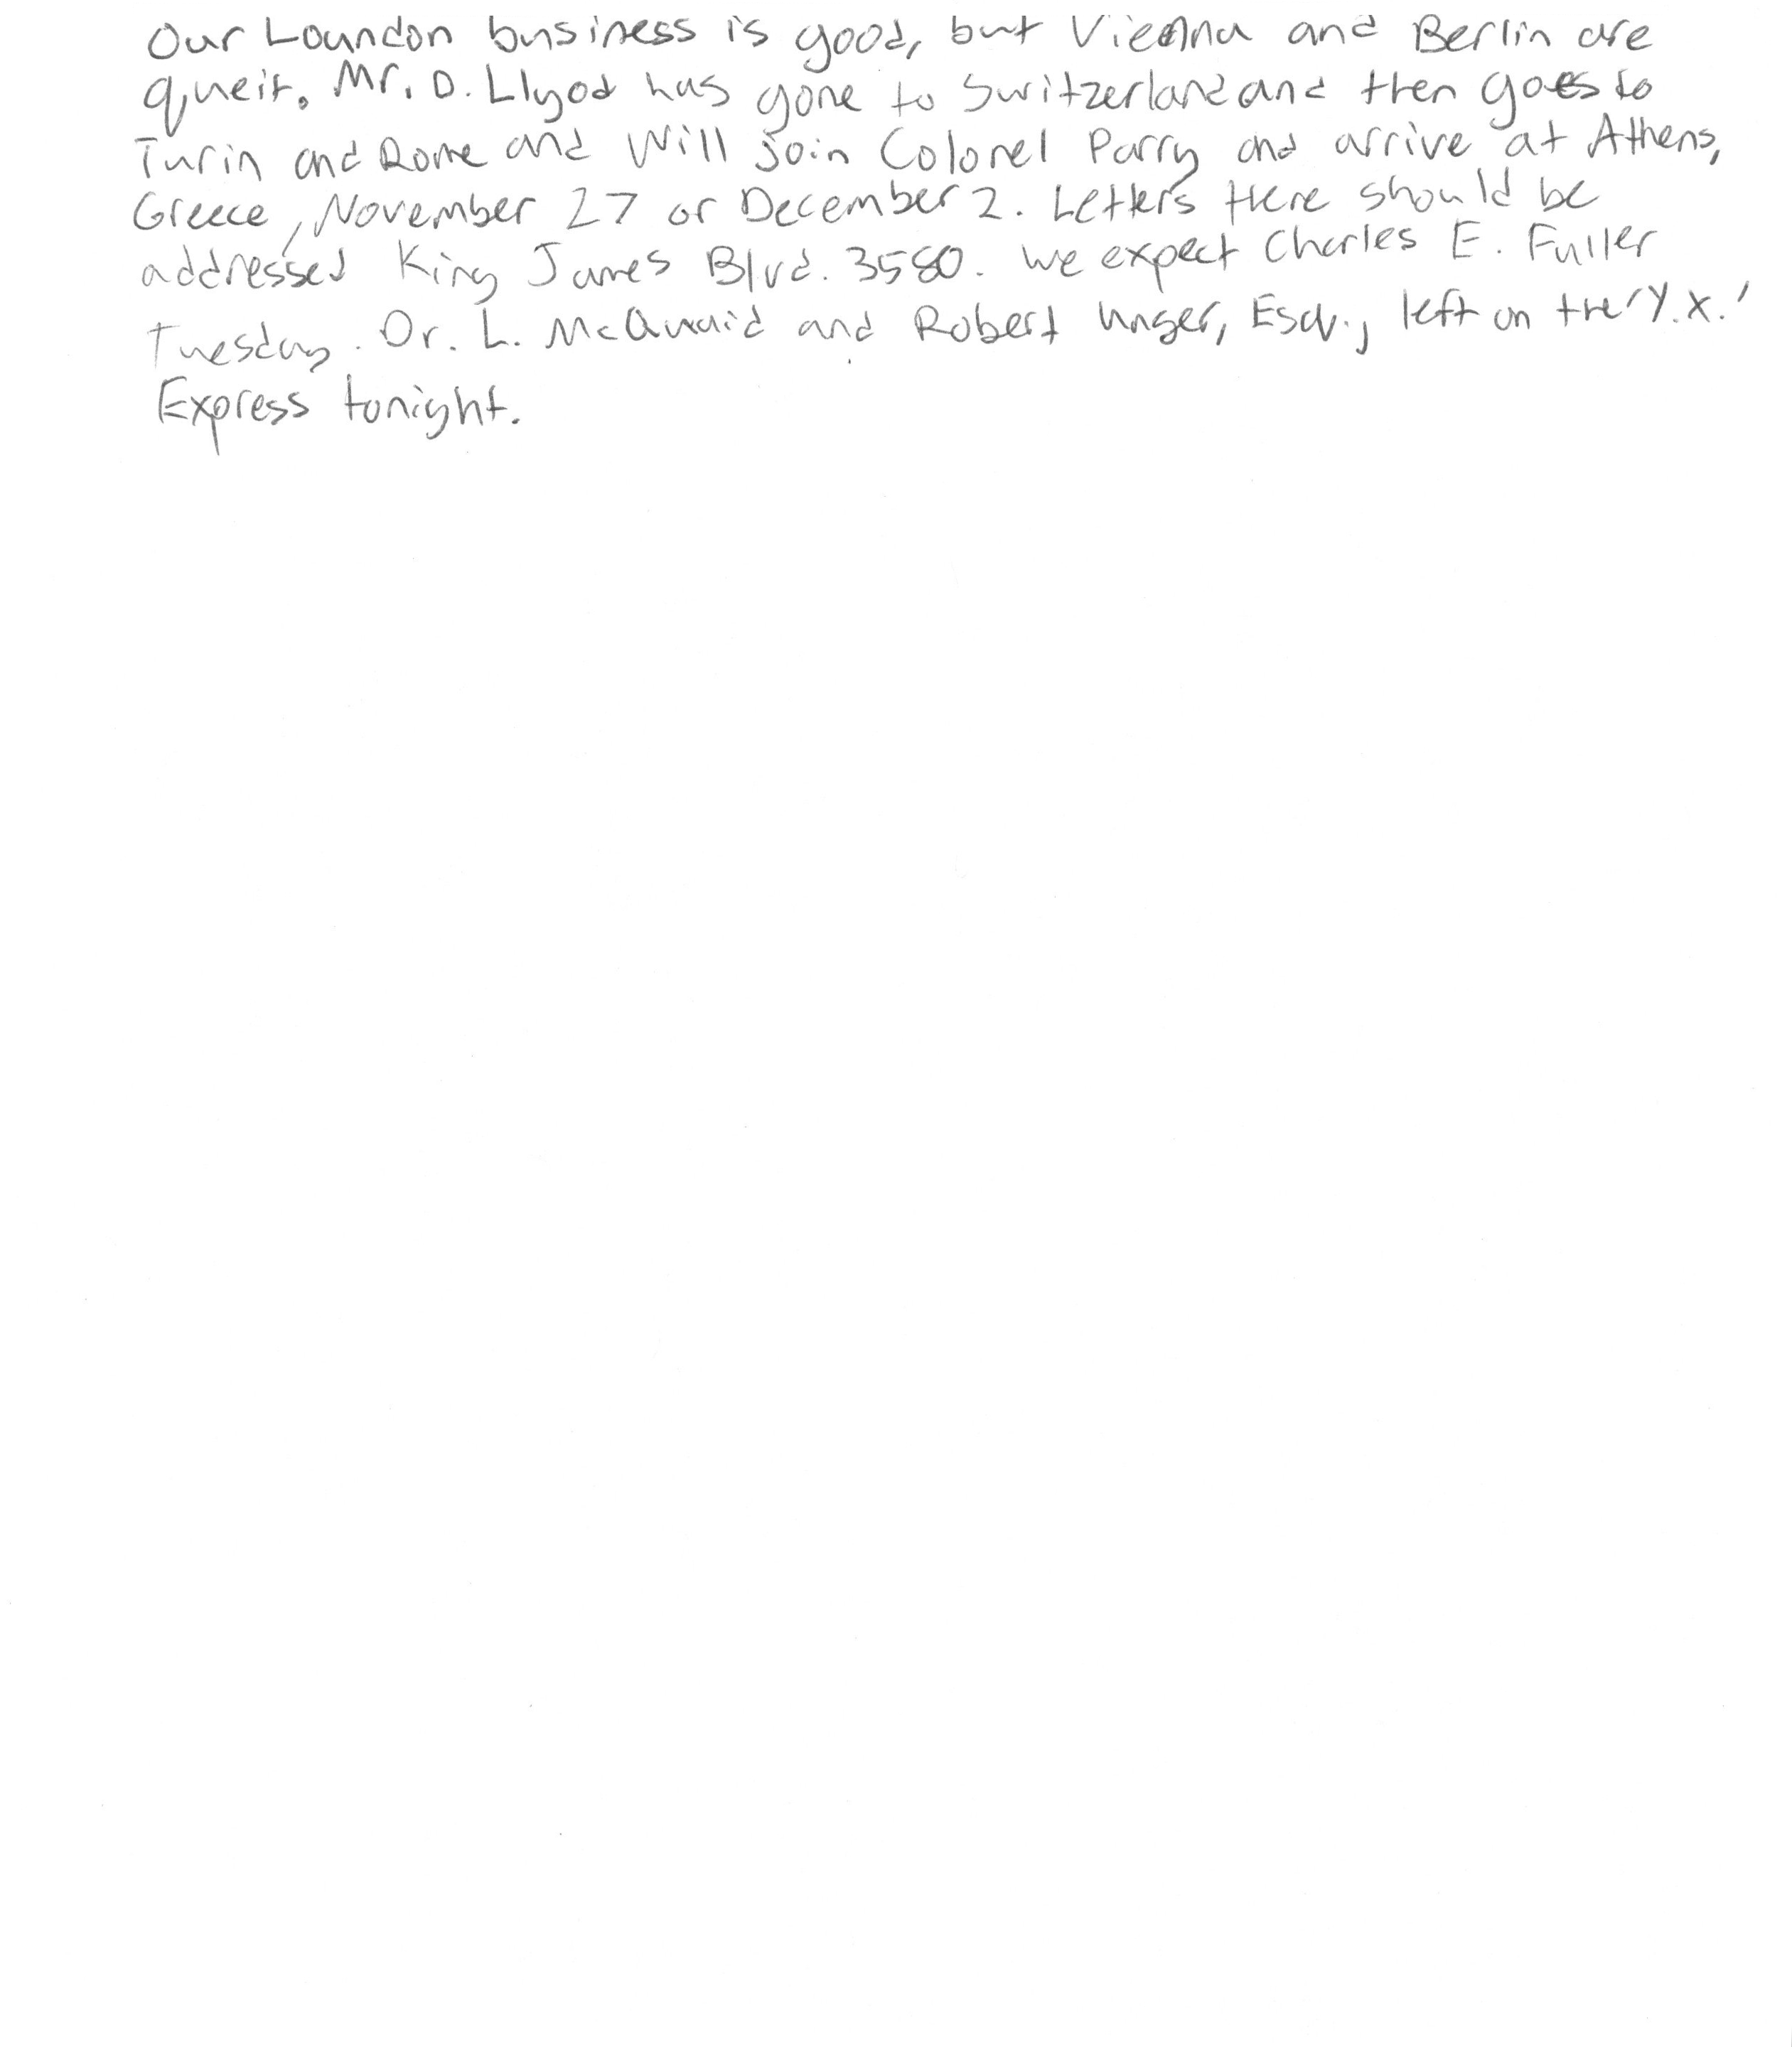 Our Loundon business is good, but Vienna and Berlin are
queit. Mr. D. Llyod has gone to Switzerland and then goes to
Turin and Rome and will join Colonel Parry and arrive at Athens,
Greece, November 27 or December 2. Letters there should be
addressed King James Blvd. 3580. We expect Charles E. Fuller
Tuesday. Dr. L. McQuaid and Robert Unger, Esq., left on the 'Y.X.'
Express tonight.